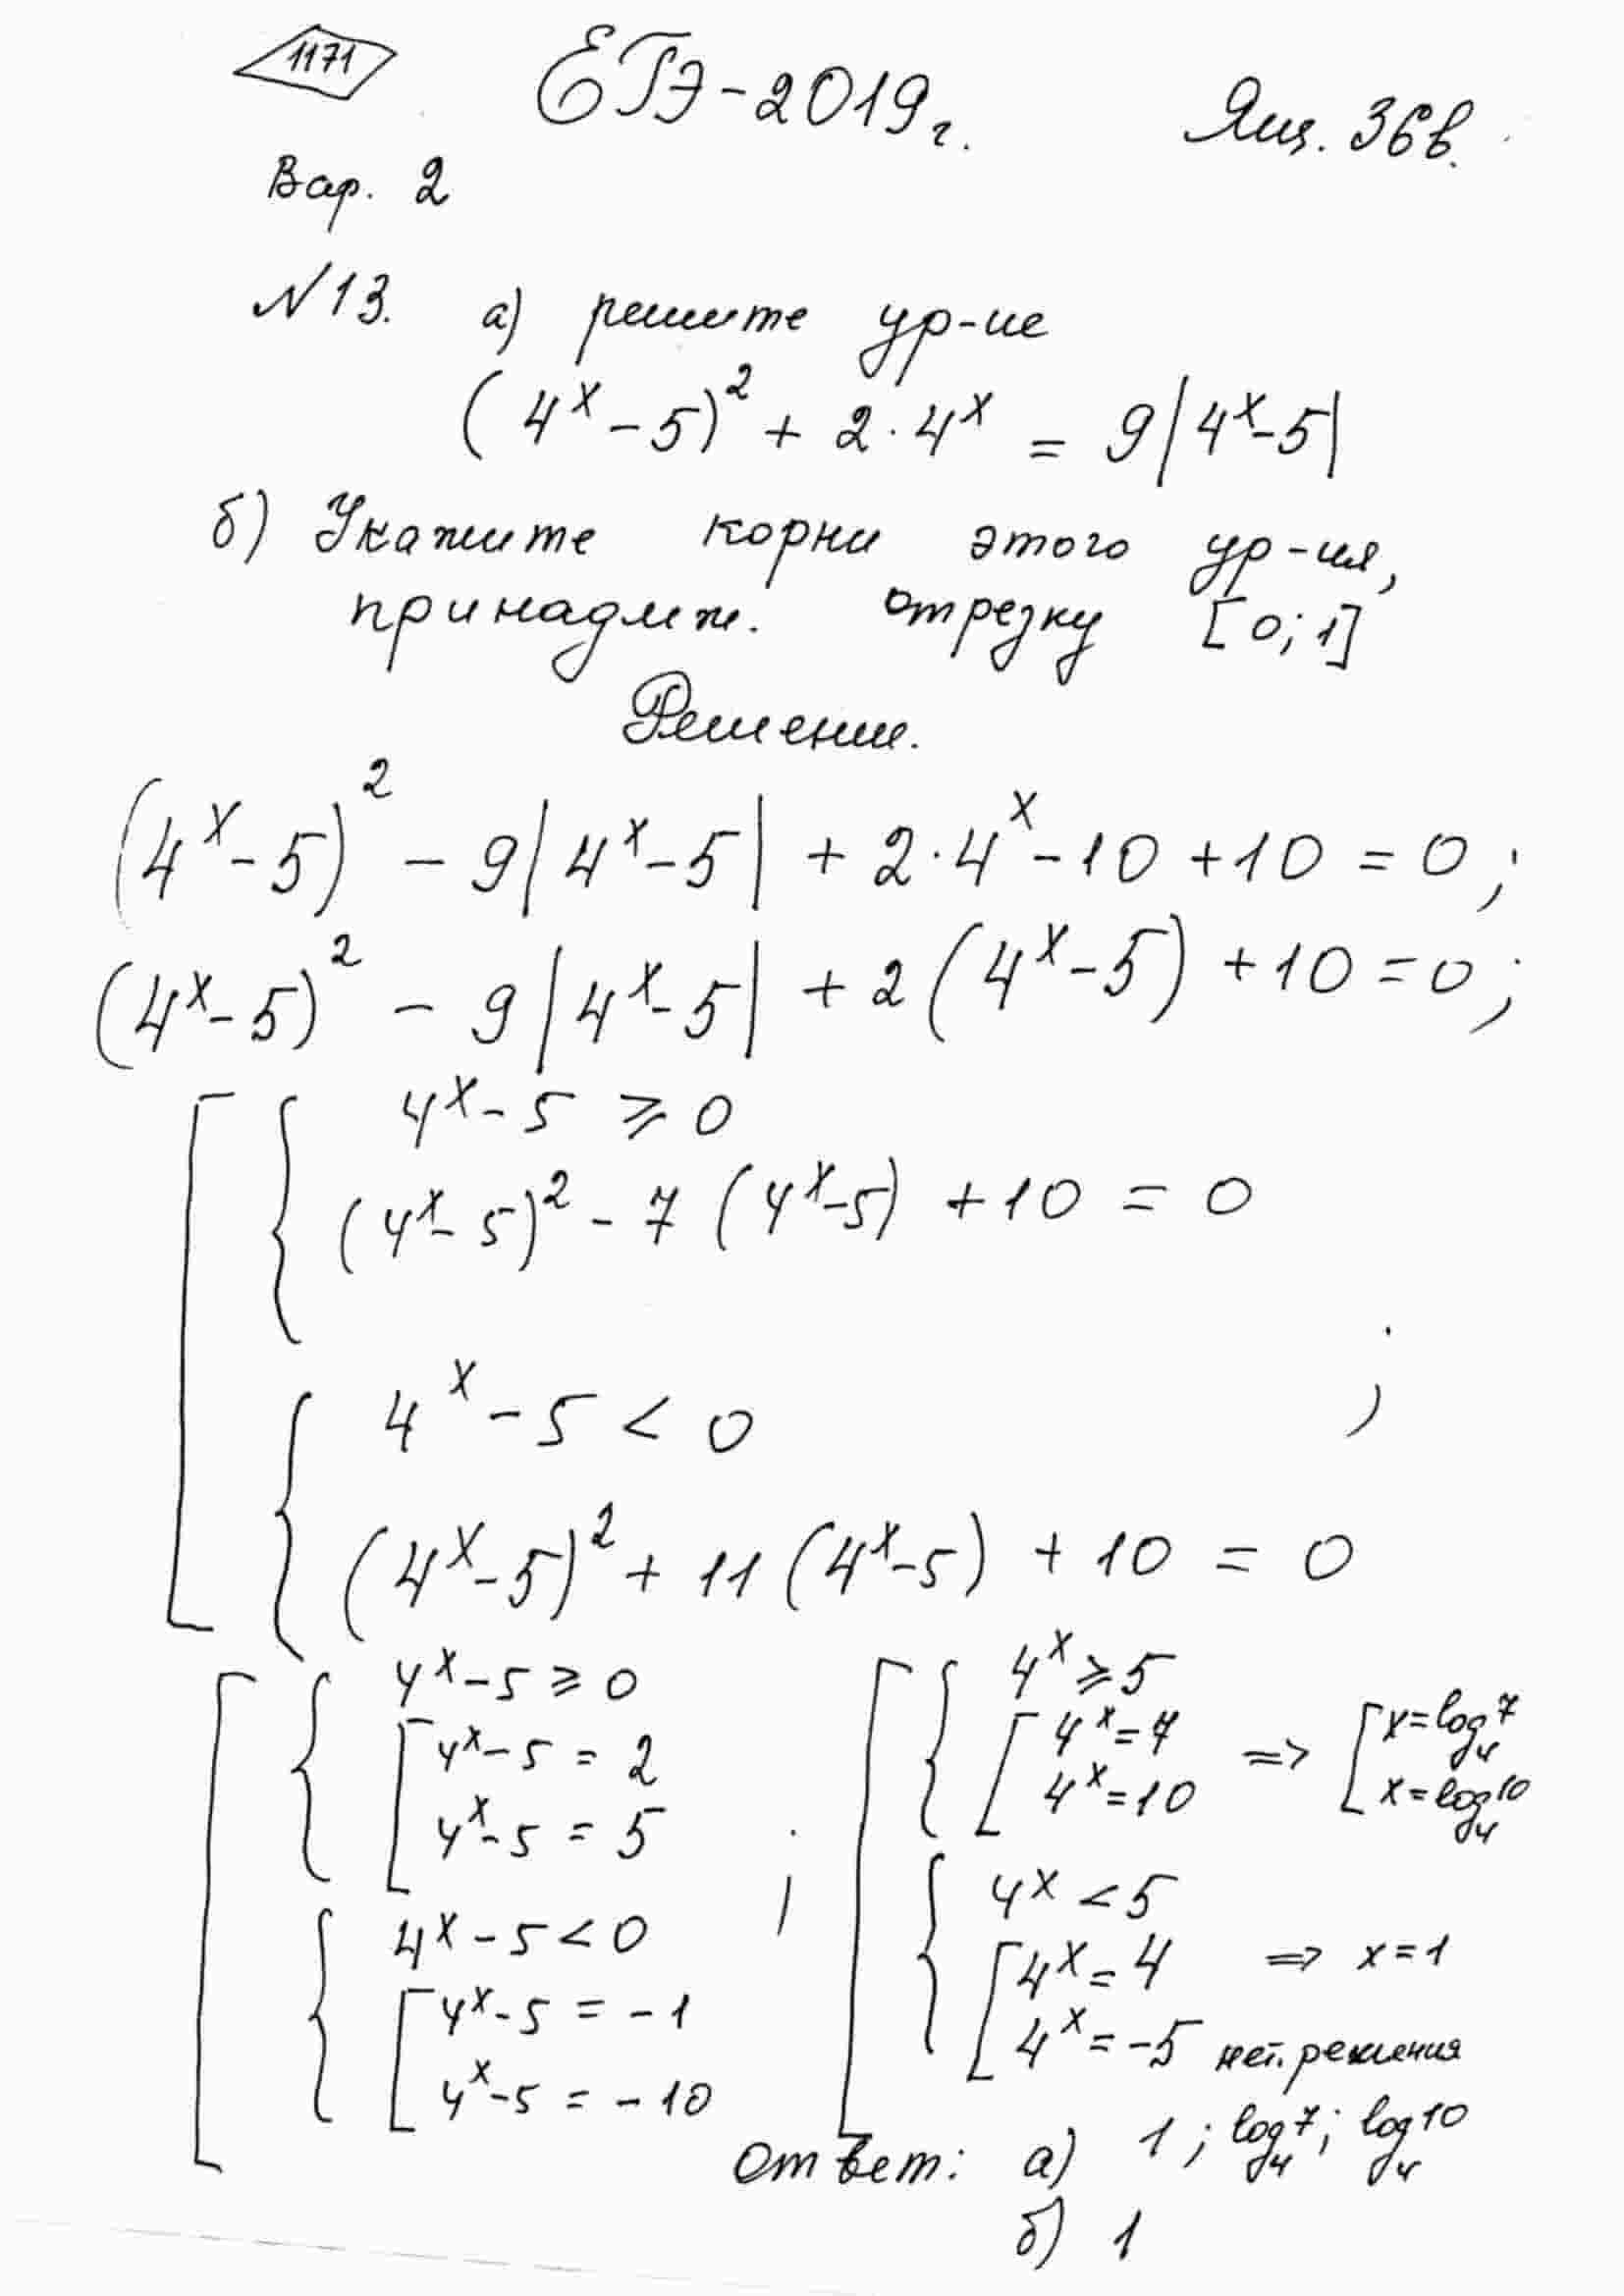 1171
ЕГЭ-2019г.
Ящ. 36в.
Вар. 2
№13. а) решите ур-ие
(4^x - 5)^2 + 2·4^x = 9|4^x - 5|
б) Укажите корни этого ур-ия,
принадлж. отрезку [0; 1]
Решение.
(4^x - 5)^2 - 9|4^x - 5| + 2·4^x - 10 + 10 = 0;
(4^x - 5)^2 - 9|4^x - 5| + 2(4^x - 5) + 10 = 0;
[ { 4^x - 5 ⩾ 0
(4^x - 5)^2 - 7(4^x - 5) + 10 = 0
{ 4^x - 5 < 0 ;
(4^x - 5)^2 + 11(4^x - 5) + 10 = 0
[ { 4^x - 5 ⩾ 0
[ 4^x - 5 = 2
4^x - 5 = 5
{ 4^x - 5 < 0 ;
[ 4^x - 5 = -1
4^x - 5 = -10
[ { 4^x ⩾ 5
[ 4^x = 7 => [ x = log_4 7
4^x = 10 x = log_4 10
{ 4^x < 5
[ 4^x = 4 => x = 1
4^x = -5 нет. решения
Ответ: а) 1; log_4 7; log_4 10
б) 1